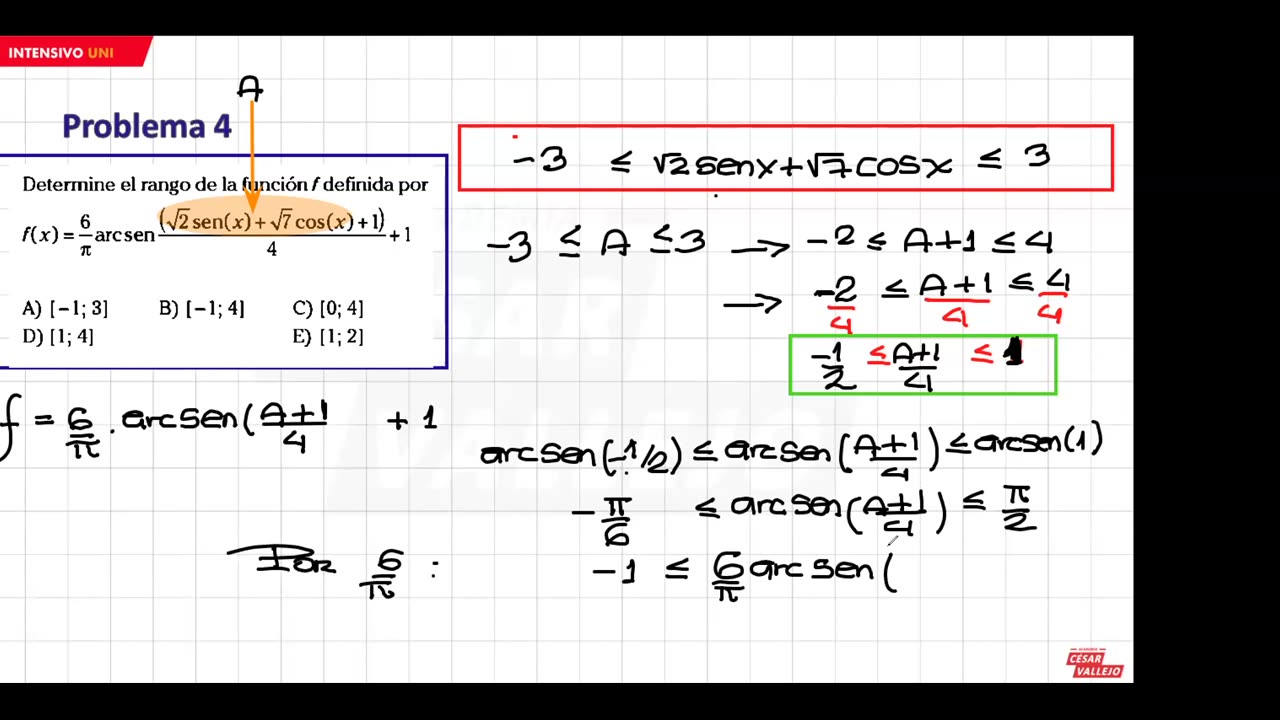 INTENSIVO UNI
A
Problema 4
Determine el rango de la función f definida por
f(x) = 6/π arcsen (√2 sen(x) + √7 cos(x) + 1)/4 + 1
A) [−1; 3] B) [−1; 4] C) [0; 4]
D) [1; 4] E) [1; 2]
-3 ≤ √2 senx + √7 cosx ≤ 3
-3 ≤ A ≤ 3 → -2 ≤ A+1 ≤ 4
→ -2/4 ≤ A+1/4 ≤ 4/4
-1/2 ≤ A+1/4 ≤ 1
f = 6/π . arcsen(A+1/4 + 1
arcsen(-1/2) ≤ arcsen(A+1/4) ≤ arcsen(1)
-π/6 ≤ arcsen(A+1/4) ≤ π/2
Por 6/π : -1 ≤ 6/π arcsen(
CÉSAR
VALLEJO